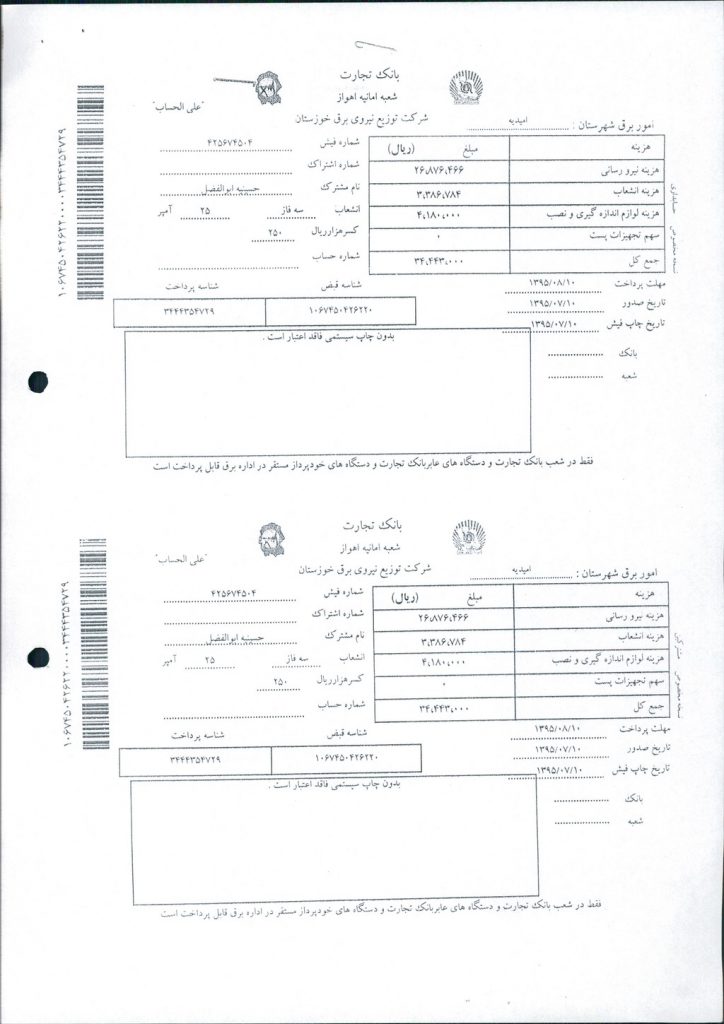 بانک تجارت
شعبه امانیه اهواز
"علی الحساب"
شرکت توزیع نیروی برق خوزستان
امور برق شهرستان : امیدیه
هزینه مبلغ (ریال)
هزینه نیرو رسانی ۲۶،۸۷۶،۴۶۶
هزینه انشعاب ۳،۳۸۶،۷۸۴
هزینه لوازم اندازه گیری و نصب ۴،۱۸۰،۰۰۰
سهم تجهیزات پست ۰
جمع کل ۳۴،۴۴۳،۰۰۰
شماره فیش ۴۲۵۶۷۴۵۰۴
شماره اشتراک
نام مشترک حسینیه ابوالفضل
انشعاب سه فاز ۲۵ آمپر
کسرهزارریال ۲۵۰
شماره حساب
نسخه مخصوص حسابداری
مهلت پرداخت ۱۳۹۵/۰۸/۱۰
تاریخ صدور ۱۳۹۵/۰۷/۱۰
تاریخ چاپ فیش ۱۳۹۵/۰۷/۱۰
بانک
شعبه
شناسه قبض شناسه پرداخت
۱۰۶۷۴۵۰۴۲۶۲۲۰ ۳۴۴۴۳۵۴۷۲۹
بدون چاپ سیستمی فاقد اعتبار است .
۱۰۶۷۴۵۰۴۲۶۲۲۰۰۰۰۳۴۴۴۳۵۴۷۲۹
فقط در شعب بانک تجارت و دستگاه های عابربانک تجارت و دستگاه های خودپرداز مستقر در اداره برق قابل پرداخت است
بانک تجارت
شعبه امانیه اهواز
"علی الحساب"
شرکت توزیع نیروی برق خوزستان
امور برق شهرستان : امیدیه
هزینه مبلغ (ریال)
هزینه نیرو رسانی ۲۶،۸۷۶،۴۶۶
هزینه انشعاب ۳،۳۸۶،۷۸۴
هزینه لوازم اندازه گیری و نصب ۴،۱۸۰،۰۰۰
سهم تجهیزات پست ۰
جمع کل ۳۴،۴۴۳،۰۰۰
شماره فیش ۴۲۵۶۷۴۵۰۴
شماره اشتراک
نام مشترک حسینیه ابوالفضل
انشعاب سه فاز ۲۵ آمپر
کسرهزارریال ۲۵۰
شماره حساب
نسخه مخصوص
مهلت پرداخت ۱۳۹۵/۰۸/۱۰
تاریخ صدور ۱۳۹۵/۰۷/۱۰
تاریخ چاپ فیش ۱۳۹۵/۰۷/۱۰
بانک
شعبه
شناسه قبض شناسه پرداخت
۱۰۶۷۴۵۰۴۲۶۲۲۰ ۳۴۴۴۳۵۴۷۲۹
بدون چاپ سیستمی فاقد اعتبار است .
۱۰۶۷۴۵۰۴۲۶۲۲۰۰۰۰۳۴۴۴۳۵۴۷۲۹
فقط در شعب بانک تجارت و دستگاه های عابربانک تجارت و دستگاه های خودپرداز مستقر در اداره برق قابل پرداخت است